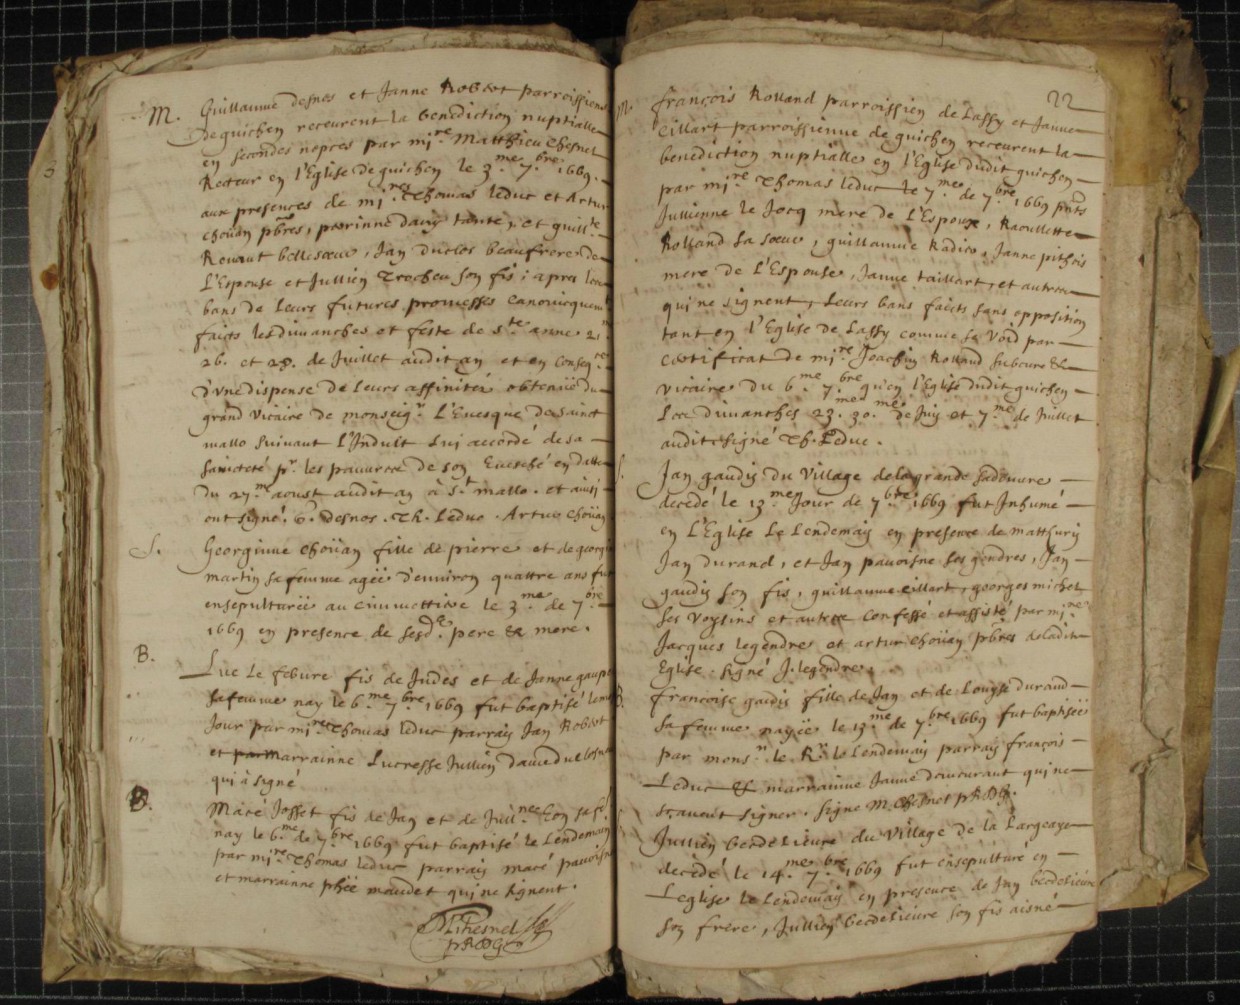 M. Guillaume desnos et Janne Robert parroissiens
de guichen receurent la benediction nuptialle
en secondes nopces par mi.re Matthieu Chesnel
Recteur en l'Eglise de guichen le 3.me 7.bre 1669.
aux presences de mi.res Thomas leduc et Artur
choüan pbres, perrinne dauy tante, et guill.te
Renaut bellesoeur, Jan duclos beaufrere de
L'Espouse et Jullien Trocheu son fis; apres les
bans de leurs futures promesses canonicquem.t
faicts les dimanches et feste de s.te anne 21.
26. et 28. de Juillet audit an, et en conseq.ce
d'vne dispense de leurs affinités obtenüe du
grand vicaire de monseig.r L'Euesque de Sainct
mallo suiuant L'Indult luj accordé de sa
saincteté p.r les pauures de son Euesché en datte
du 27.me aoust audit an à S.t mallo. et ainsi
ont signé. G. desnos. Th. Leduc. Artur Choüan
S. Georginne Choüan fille de pierre et de georgi
martin sa femme ageé d'enuiron quattre ans fut
ensepulturéé au cimmettiere le 3.me de 7.bre
1669 en presence de sesd. pere & mere.
B. Luc le febure fis de Judes et de Janne
sa femme nay le 6.me 7.bre 1669 fut baptisé le mesme
Jour par mi.re Thomas leduc parrain Jan Robert
et par marrainne Lucresse Jullien dame du
qui à signé
B. Macé Josset fis de Jan et de
nay le 6.me de 7.bre 1669 fut baptisé le Lendemain
par mi.re Thomas leduc parrain macé pauoisne
et marrainne mandet qui ne signent.
M Chesnel
22
M. françois Rolland parroissien de Lassy et Janne
Eillart parroissienne de guichen receurent la
benediction nuptialle en l'Eglise dudit guichen
par mi.re Thomas leduc le 7.me de 7.bre 1669 pnts
Jullienne le Jocq mere de L'Espoux, Raoullette
Rolland sa soeur, guillaume Radico, Janne pithois
mere de L'Espouse, Janne taillart, et autres
qui ne signent, Leurs bans faicts sans opposition
tant en l'Eglise de Lassy comme se void par
certificat de mi.re Joachim Rolland subcuré &
vicaire du 6.me 7.bre qu'en l'Eglise dudit guichen
Les dimanches 23. 30.me de Juin et 7.me de Juillet
audit signé Th. Leduc.
S. Jan gaudin du village de la grande
decedé le 13.me Jour de 7.bre 1669 fut Inhumé
en L'Eglise le Lendemain en presence de matthurin
Jan durand, et Jan pauoisne ses gendres, Jan
gaudin son fis, guillaume eillart, georges michel
ses voysins et autres confessé et assisté par mi.res
Jacques legendre et artur choüan pbres de ladite
Eglise. signé J. legendre.
B. francoise gaudin fille de Jan et de Louyse durand
sa femme nayée le 13.me de 7.bre 1669 fut baptisée
par mons.r le R.r le Lendemain parrain françois
Leduc & marrainne Janne demourant qui ne
sçauent signer. Signé M. Chesnel
S. Jullien berdelieure du Village de la Largeays
decedé le 14.me 7.bre 1669 fut ensepulturé en
Leglise le Lendemain en presence de Jan berdelieure
son frere, Jullien berdelieure son fis aisné